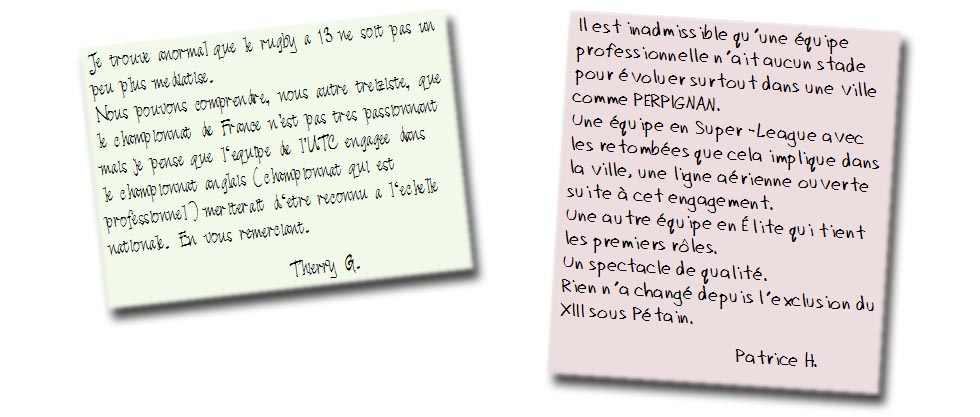 Je trouve anormal que le rugby a 13 ne soit pas un
peu plus mediatise.
Nous pouvons comprendre, nous autre treiziste, que
le championnat de France n'est pas tres passionnant
mais je pense que l'equipe de l'UTC engagee dans
le championnat anglais (championnat qui est
professionnel) meriterait d'etre reconnu a l'echelle
nationale. En vous remerciant.
Thierry G.
Il est inadmissible qu'une équipe
professionnelle n'ait aucun stade
pour évoluer surtout dans une ville
comme PERPIGNAN.
Une équipe en Super-League avec
les retombées que cela implique dans
la ville, une ligne aérienne ouverte
suite à cet engagement.
Une autre équipe en Élite qui tient
les premiers rôles.
Un spectacle de qualité.
Rien n'a changé depuis l'exclusion du
XIII sous Pétain.
Patrice H.